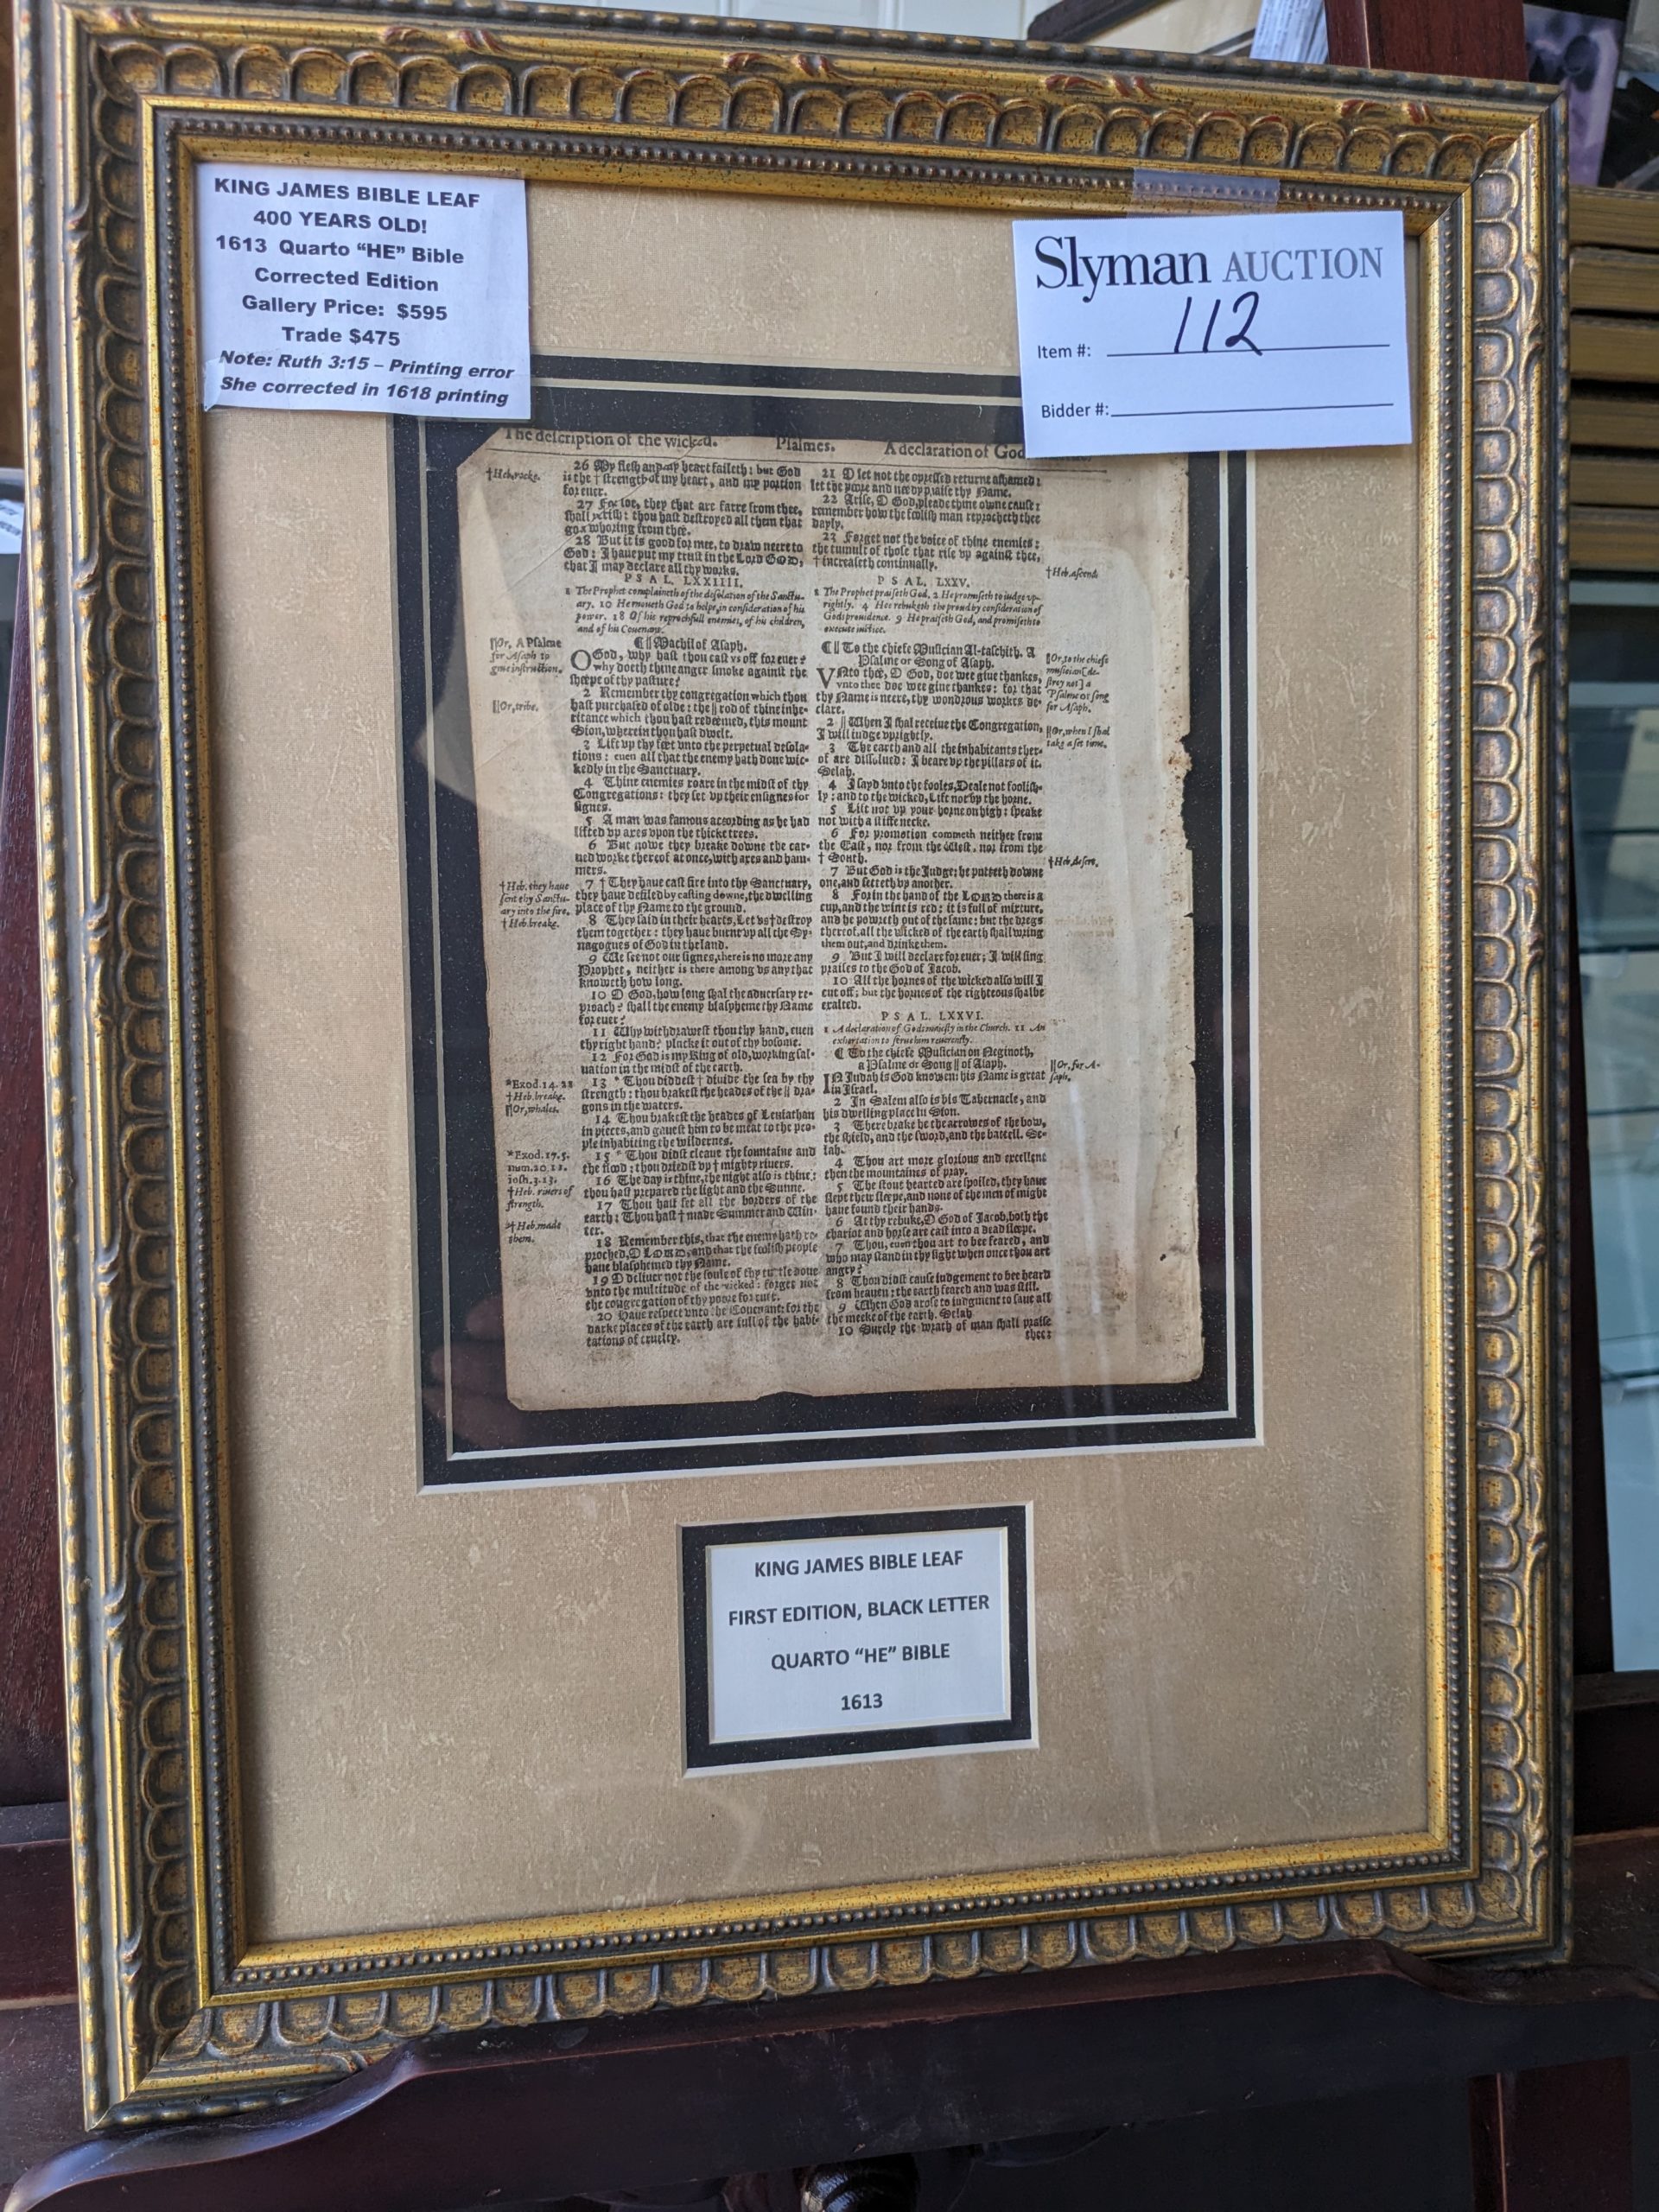 KING JAMES BIBLE LEAF
400 YEARS OLD!
1613 Quarto “HE” Bible
Corrected Edition
Gallery Price: $595
Trade $475
Note: Ruth 3:15 – Printing error
She corrected in 1618 printing
Slyman AUCTION
Item #: 112
Bidder #:
The description of the wicked. Psalmes. A declaration of God
† Heb. rocke.
26 My flesh and my heart faileth: but God
is the † strength of my heart, and my portion
for euer.
27 For loe, they that are farre from thee,
shall perish: thou hast destroyed all them that
goe a whoring from thee.
28 But it is good for mee, to draw neere to
God: I haue put my trust in the Lord GOD,
that I may declare all thy works.
PSAL. LXXIIII.
1 The Prophet complaineth of the desolation of the Sanctu-
ary. 10 He moueth God to helpe, in consideration of his
power, 18 Of his reprochfull enemies, of his children,
and of his Couenant.
|| Or, A Psalme
for Asaph to
giue instruction.
¶ || Maschil of Asaph.
O God, why hast thou cast vs off for euer?
why doeth thine anger smoke against the
sheepe of thy pasture?
2 Remember thy congregation which thou
hast purchased of olde: the || rod of thine inhe-
ritance which thou hast redeemed, this mount
Sion, wherein thou hast dwelt.
|| Or, tribe.
3 Lift vp thy feet vnto the perpetual desola-
tions: euen all that the enemy hath done wic-
kedly in the Sanctuary.
4 Thine enemies roare in the midst of thy
Congregations: they set vp their ensignes for
signes.
5 A man was famous according as he had
lifted vp axes vpon the thicke trees.
6 But nowe they breake downe the car-
ued worke thereof at once, with axes and ham-
mers.
7 † They haue cast fire into thy Sanctuary,
they haue defiled by casting downe, the dwelling
place of thy Name to the ground.
† Heb. they haue
sent thy Sanctu-
ary into the fire.
† Heb. breake.
8 They said in their hearts, Let vs † destroy
them together: they haue burnt vp all the Sy-
nagogues of God in the land.
9 We see not our signes, there is no more any
Prophet, neither is there among vs any that
knoweth how long.
10 O God, how long shal the aduersary re-
proach? shall the enemy blaspheme thy Name
for euer?
11 Why withdrawest thou thy hand, euen
thy right hand? plucke it out of thy bosome.
12 For God is my King of old, working sal-
uation in the midst of the earth.
13 * Thou diddest † diuide the sea by thy
strength: thou brakest the heades of the || dra-
gons in the waters.
* Exod. 14. 22
† Heb. breake.
|| Or, whales.
14 Thou brakest the heades of Leuiathan
in pieces, and gauest him to be meat to the peo-
ple inhabiting the wildernes.
15 * Thou didst cleaue the fountaine and
the flood: thou driedst vp † mighty riuers.
* Exod. 17. 5.
num. 20 11.
iosh. 3. 13.
† Heb. riuers of
strength.
16 The day is thine, the night also is thine:
thou hast prepared the light and the Sunne.
17 Thou hast set all the borders of the
earth: Thou hast † made Summer and Win-
ter.
† Heb. made
them.
18 Remember this, that the enemy hath re-
proched, O LORD, and that the foolish people
haue blasphemed thy Name.
19 O deliuer not the soule of thy turtle doue
vnto the multitude of the wicked: forget not
the congregation of thy poore for euer.
20 Haue respect vnto the Couenant: for the
darke places of the earth are full of the habi-
tations of cruelty.
21 O let not the oppressed returne ashamed:
let the poore and needy praise thy Name.
22 Arise, O God, pleade thine owne cause:
remember how the foolish man reprocheth thee
dayly.
23 Forget not the voice of thine enemies:
the tumult of those that rise vp against thee,
† increaseth continually.
† Heb. ascend.
PSAL. LXXV.
1 The Prophet praiseth God. 2 He promiseth to iudge vp-
rightly. 4 Hee rebuketh the proud by consideration of
Gods prouidence. 9 He praiseth God, and promiseth to
execute iustice.
¶ || To the chiefe Musician Al-taschith. A
Psalme or Song of Asaph.
|| Or, to the chiefe
musician [de-
stroy not] a
Psalme or song
for Asaph.
VNto thee, O God, doe wee giue thankes,
vnto thee doe wee giue thankes: for that
thy Name is neere, thy wondrous workes de-
clare.
2 || When I shal receiue the Congregation,
I will iudge vprightly.
|| Or, when I shal
take a set time.
3 The earth and all the inhabitants ther-
of are dissolued: I beare vp the pillars of it.
Selah.
4 I sayd vnto the fooles, Deale not foolish-
ly: and to the wicked, Lift not vp the horne.
5 Lift not vp your horne on high: speake
not with a stiffe necke.
6 For promotion commeth neither from
the East, nor from the West, nor from the
† South.
† Heb. desert.
7 But God is the Judge: he putteth downe
one, and setteth vp another.
8 For in the hand of the LORD there is a
cup, and the wine is red: it is full of mixture,
and he powreth out of the same: but the dregs
thereof, all the wicked of the earth shall wring
them out, and drinke them.
9 But I will declare for euer; I will sing
praises to the God of Jacob.
10 All the hornes of the wicked also will I
cut off; but the hornes of the righteous shalbe
exalted.
PSAL. LXXVI.
1 A declaration of Gods maiesty in the Church. 11 An
exhortation to serue him reuerently.
¶ To the chiefe Musician on Neginoth,
a Psalme or Song || of Asaph.
|| Or, for A-
saph.
IN Judah is God knowen: his Name is great
in Israel.
2 In Salem also is his Tabernacle, and
his dwelling place in Sion.
3 There brake he the arrowes of the bow,
the shield, and the sword, and the battell. Se-
lah.
4 Thou art more glorious and excellent
then the mountaines of pray.
5 The stout hearted are spoiled, they haue
slept their sleepe, and none of the men of might
haue found their hands.
6 At thy rebuke, O God of Jacob, both the
chariot and horse are cast into a dead sleepe.
7 Thou, euen thou art to bee feared, and
who may stand in thy sight when once thou art
angry?
8 Thou didst cause iudgement to bee heard
from heauen; the earth feared and was still.
9 When God arose to iudgment to saue all
the meeke of the earth. Selah
10 Surely the wrath of man shall praise
thee:
KING JAMES BIBLE LEAF
FIRST EDITION, BLACK LETTER
QUARTO “HE” BIBLE
1613